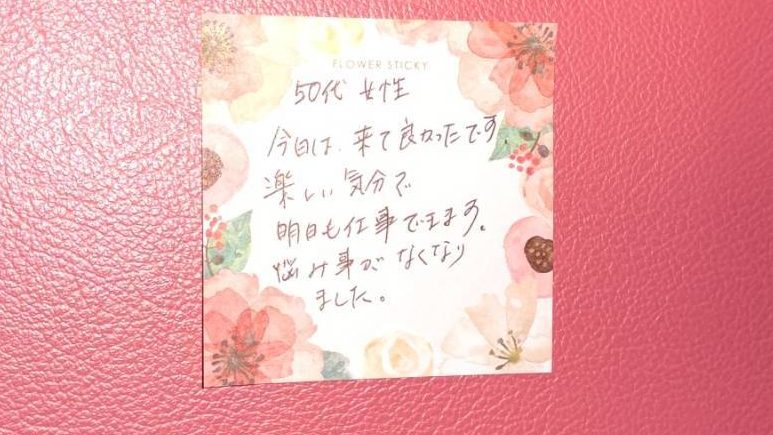 FLOWER STICKY
50代 女性
今日は、来て良かったです。
楽しい気分で
明日も仕事できます。
悩み事がなくなり
ました。